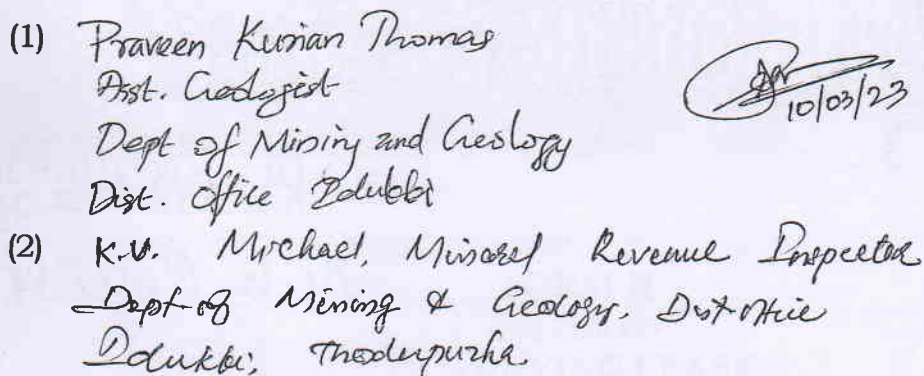 (1) Praveen Kurian Thomas
Asst. Geologist
Dept of Mining and Geology
Dist. Office Idukki
10/03/23
(2) K.V. Michael, Mineral Revenue Inspector
Dept of Mining & Geology, Dist office
Idukki, Thodupuzha.